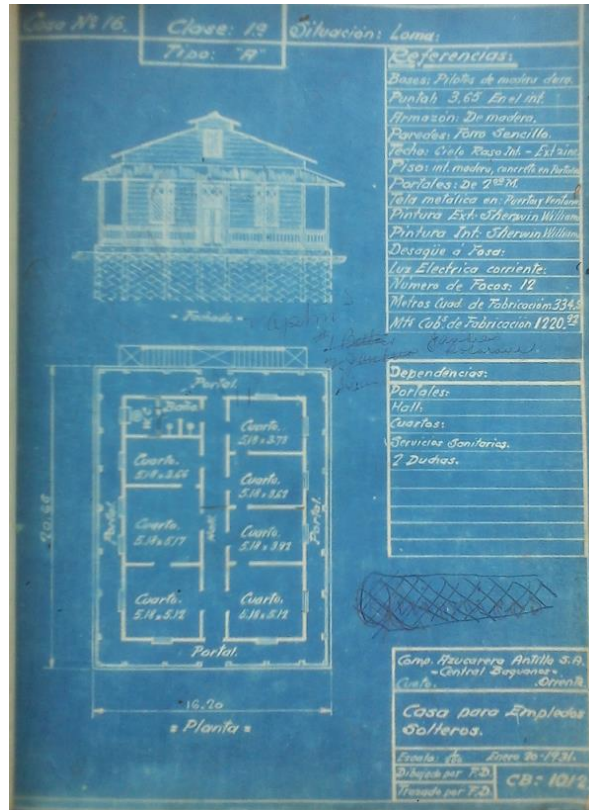 Casa Nº 16.
Clase: 1ª
Situación: Loma:
Tipo: "A"
Referencias:
Bases: Pilotes de madera dura.
Puntal: 3,65 En el int.
Armazon: De madera.
Paredes: Forro Sencillo.
Techo: Cielo Raso Int. - Ext. zinc.
Piso: int. madera, concreto en Portales
Portales: De 2.00 M.
Tela metálica en: Puertas y Ventanas
Pintura Ext: Sherwin Williams
Pintura Int: Sherwin Williams
Desagüe á Fosa:
Luz Electrica corriente:
Número de Focos: 12
Metros Cuad. de Fabricación 334,
Mts Cubs de Fabricación 1220,93
- Fachada -
Dependencias:
Portales:
Hall:
Cuartos:
Servicios Sanitarios.
2 Duchas.
Portal.
W.C.
Baño.
Cuarto.
5.18 x 3.73
Cuarto.
5.18 x 3.66
Cuarto.
5.18 x 3.69
Portal.
20.65
Cuarto.
5.18 x 5.17
Hall
Cuarto.
5.18 x 3.92
Portal.
Cuarto.
5.18 x 5.12
Cuarto.
5.18 x 5.12
Portal.
16.20
= Planta =
Comp. Azucarera Antilla S.A.
- Central Baguanos -
Cueto. Oriente
Casa para Empleados
Solteros.
Escala: Enero 20-1931.
Dibujado por F.D.
Trazado por F.D.
CB- 1012